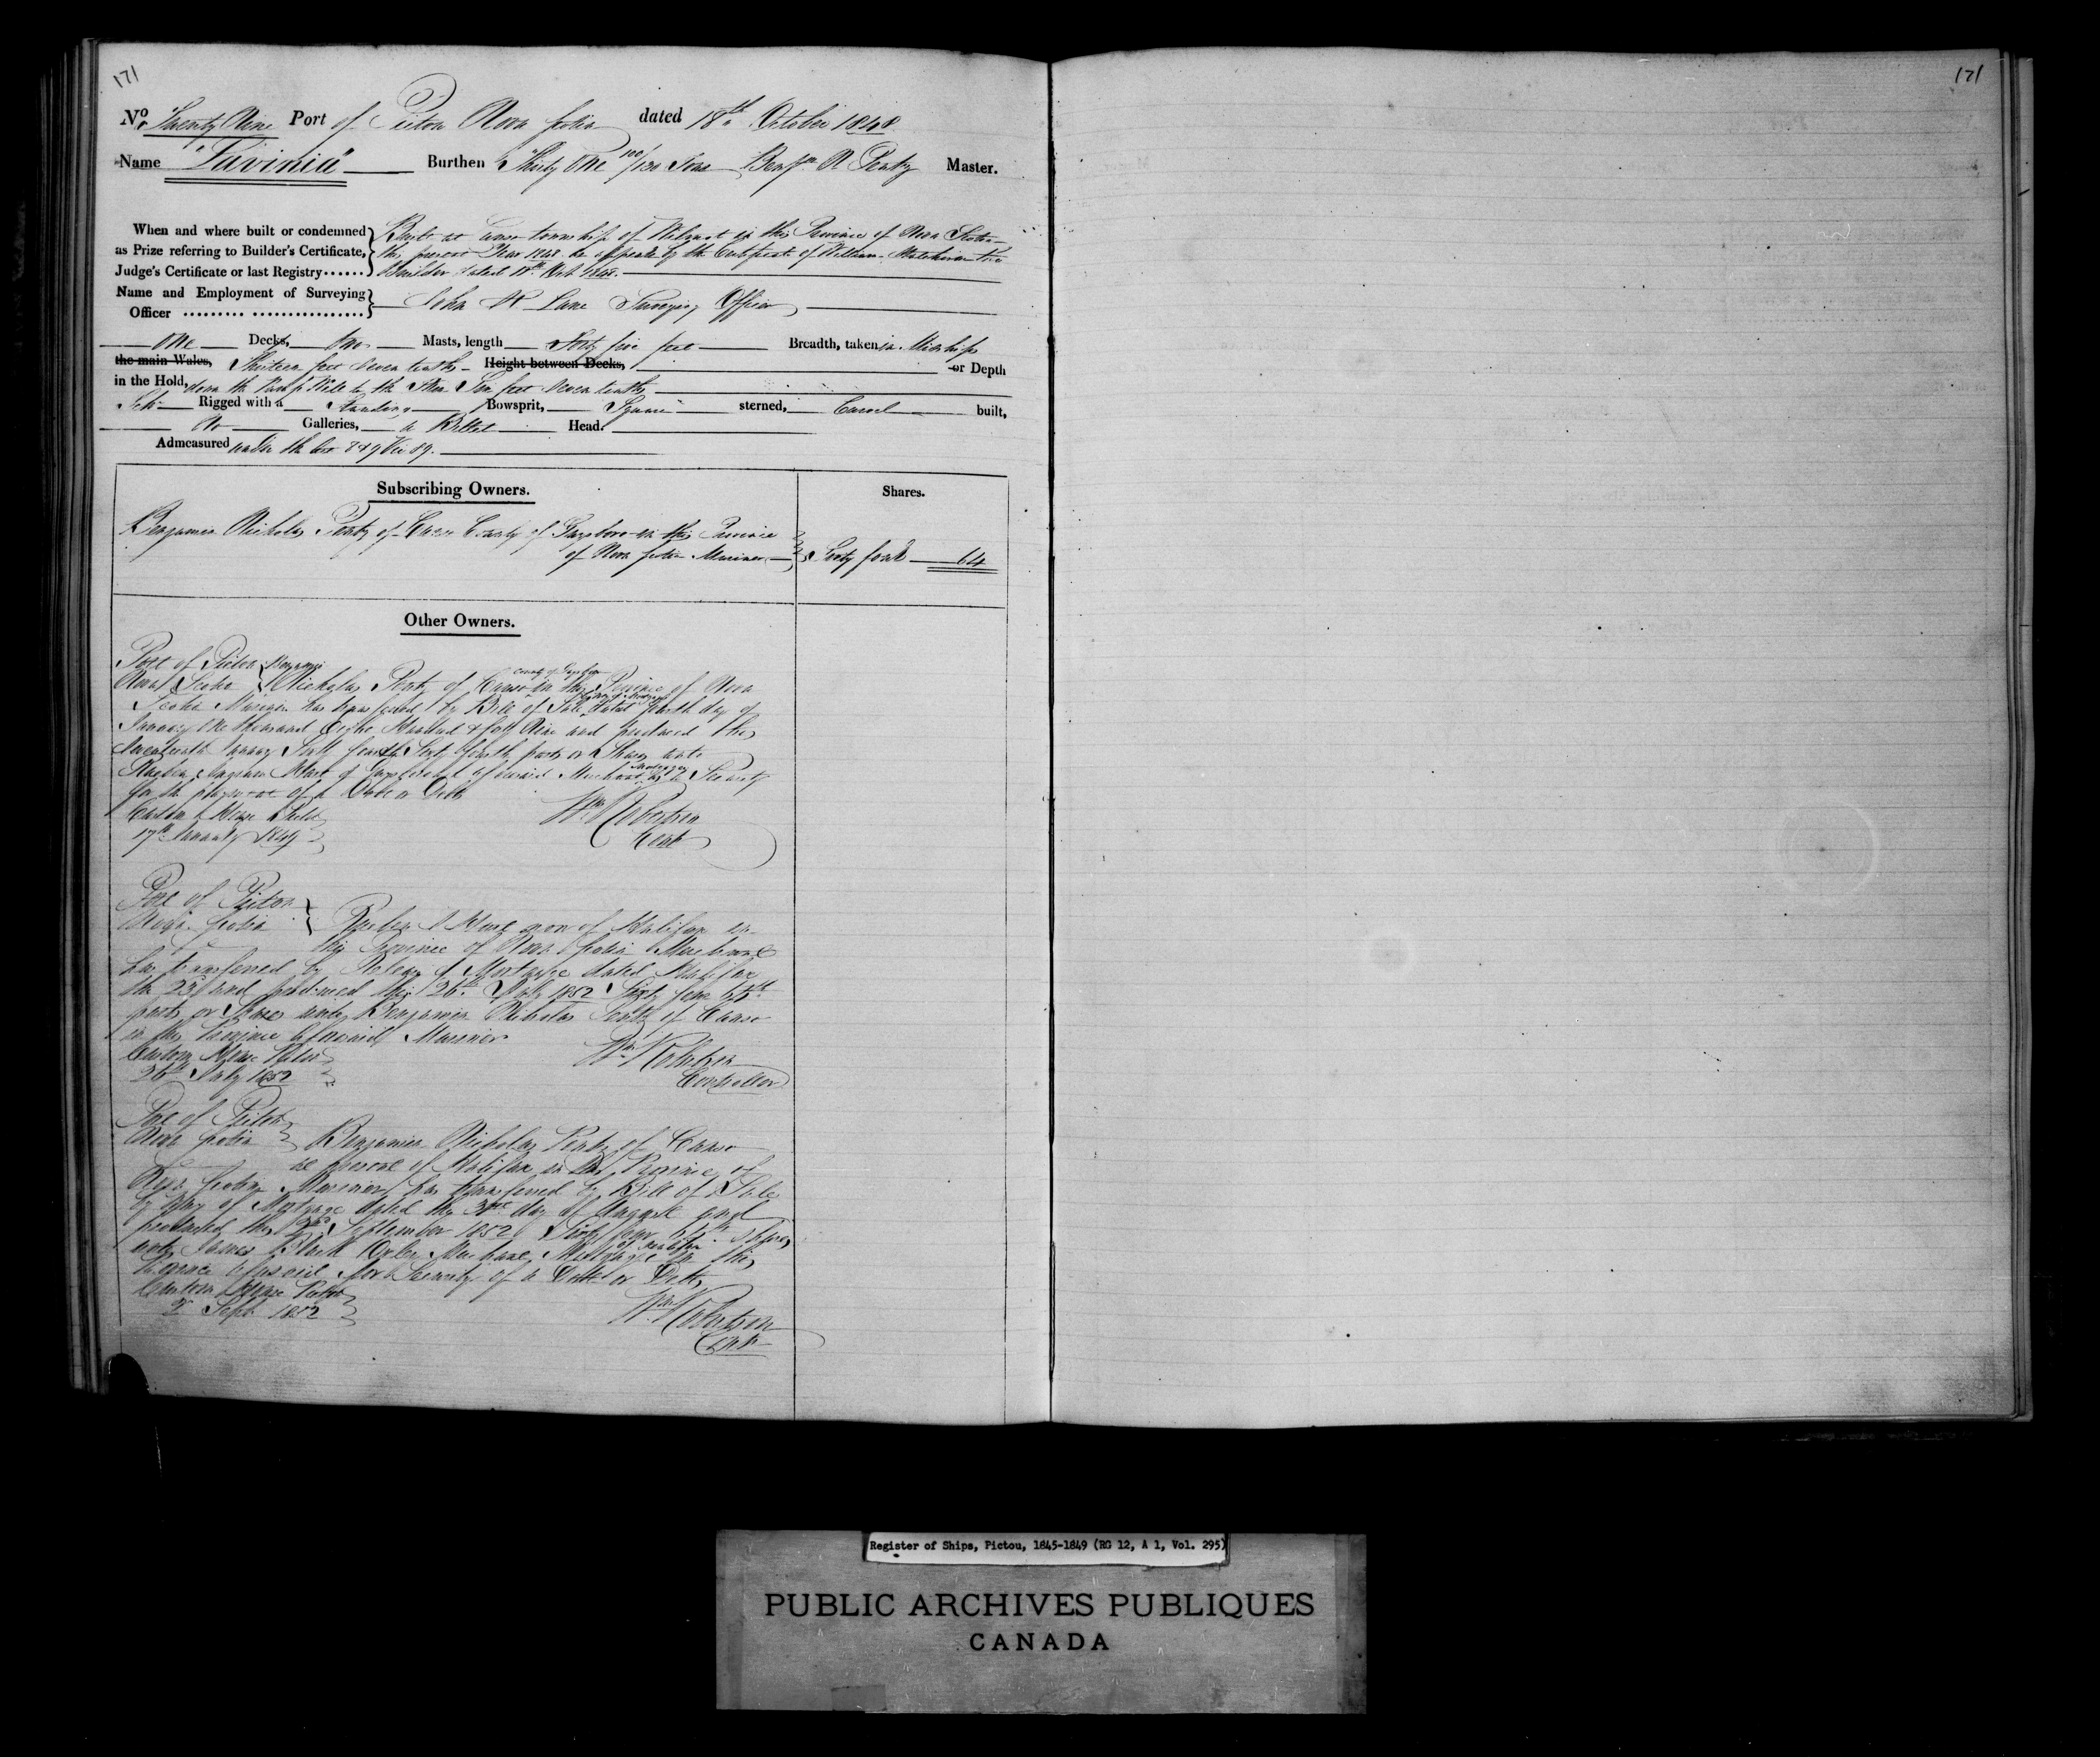 171
171
No. Twenty Nine Port of Pictou Nova Scotia dated 18th October 1848
Name "Lavinia" Burthen Thirty One 100/130 Tons Benjn N Peart Master.
When and where built or condemned as Prize referring to Builder's Certificate, Judge's Certificate or last Registry......
Built at Canso township of Wilmot in this Province of Nova Scotia
the present Year 1848 as appears by the Certificate of William the
Builder dated Oct 1848.
Name and Employment of Surveying Officer ......... ................
John Lane Surveying Officer
One Decks, two Masts, length Forty five feet Breadth, taken in Midships
the main Wales, Thirteen feet seven tenths Height between Decks, or Depth
in the Hold, down the Pump Well to the Skin Six feet seven tenths
Sch Rigged with a Standing Bowsprit, Square sterned, Carvel built,
No Galleries, a Billet Head.
Admeasured under the Act 8 & 9 Vic 89.
Subscribing Owners.
Shares.
Benjamin Nicholas of Canso County of Guysboro in this Province
of Nova Scotia Mariner Sixty four 64
Other Owners.
Port of Pictou Benjamin
Nova Scotia Nicholas of Canso in this Province of Nova
County of Guysboro
Scotia Mariner has transferred by Bill of Sale dated fourth day of
by way of Mortgage
January One thousand Eight Hundred & forty Nine and produced this
Seventeenth January Sixty four Sixty fourth parts or Shares unto
Hart of aforesaid Merchant as a Security
Mortgagee
for the payment of a Debt or Debts
Custom House Pictou
17th January 1849
Wm Robertson
Cont
Port of Pictou
Nova Scotia Reuben I Hart now of Halifax in
this Province of Nova Scotia Merchant
has transferred by Release of Mortgage dated Halifax
the 23d and produced this 26th July 1852 Sixty four 64th
parts or Shares unto Benjamin Nicholas of Canso
in the Province aforesaid Mariner
Custom House Pictou
26th July 1852
Wm Robertson
Controller
Port of Pictou
Nova Scotia Benjamin Nicholas of Canso
at present of Halifax in the Province of
Nova Scotia Mariner has transferred by Bill of Sale
by way of Mortgage dated the day of August and
produced this September 1852 Sixty four 64th shares
unto James Black Oxley Merchant Mortgagee in this
of Halifax
Province aforesaid for Security of a Debt or Debts
Custom House Pictou
2 Sept 1852
Wm Robertson
Cont
Register of Ships, Pictou, 1845-1849 (RG 12, A 1, Vol. 295)
PUBLIC ARCHIVES PUBLIQUES
CANADA